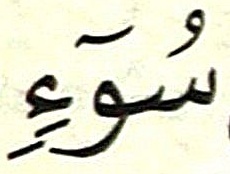 سُوٓءِ